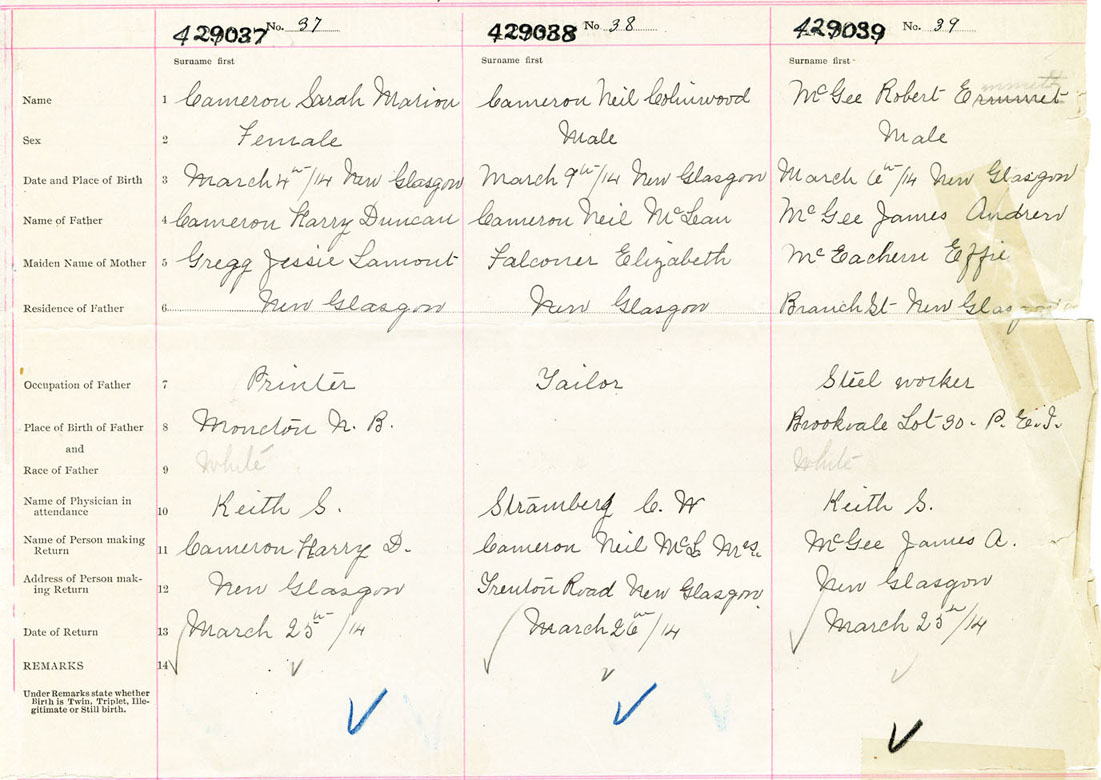 429037 No. 37 429038 No 38 429039 No. 39
Surname first Surname first Surname first
Name 1 Cameron Sarah Marion Cameron Neil Colinwood McGee Robert Emmmet mmett
Sex 2 Female Male Male
Date and Place of Birth 3 March 4th/14 New Glasgow March 9th/14 New Glasgow March 6th/14 New Glasgow
Name of Father 4 Cameron Harry Duncan Cameron Neil McLean McGee James Andrew
Maiden Name of Mother 5 Gregg Jessie Lamont Falconer Elizabeth McEachern Effie
Residence of Father 6 New Glasgow New Glasgow Branch St New Glasgow
Occupation of Father 7 Printer Tailor Steel worker
Place of Birth of Father 8 Moncton N. B. Brookvale Lot 30 - P. E. I.
and
Race of Father 9 White White
Name of Physician in
attendance 10 Keith S. Stramberg C. W Keith S.
Name of Person making
Return 11 Cameron Harry D. Cameron Neil McL Mrs. McGee James A.
Address of Person mak-
ing Return 12 New Glasgow Trenton Road New Glasgow New Glasgow
Date of Return 13 March 25th/14 March 26th/14 March 25th/14
REMARKS 14
Under Remarks state whether
Birth is Twin, Triplet, Ille-
gitimate or Still birth.